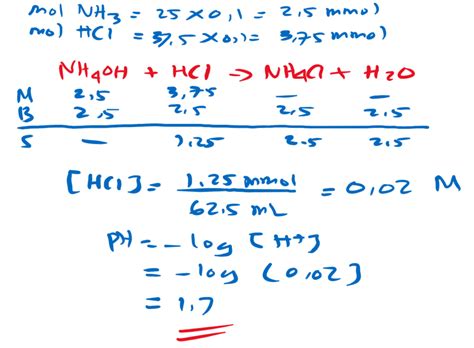 mol NH3 = 25 x 0,1 = 2,5 mmol
mol HCl = 37,5 x 0,1 = 3,75 mmol
NH4OH + HCl → NH4Cl + H2O
M 2,5 3,75 — —
B 2,5 2,5 2,5 2,5
S — 1,25 2.5 2.5
[HCl] = 1,25 mmol / 62.5 mL = 0,02 M
PH = -log [H+]
= -log (0,02)
= 1,7